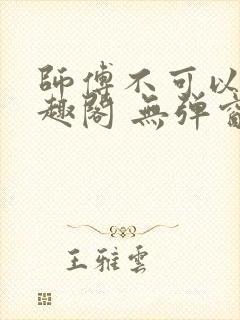 師傅不可以
趣閣 無弹窗
王雅雲